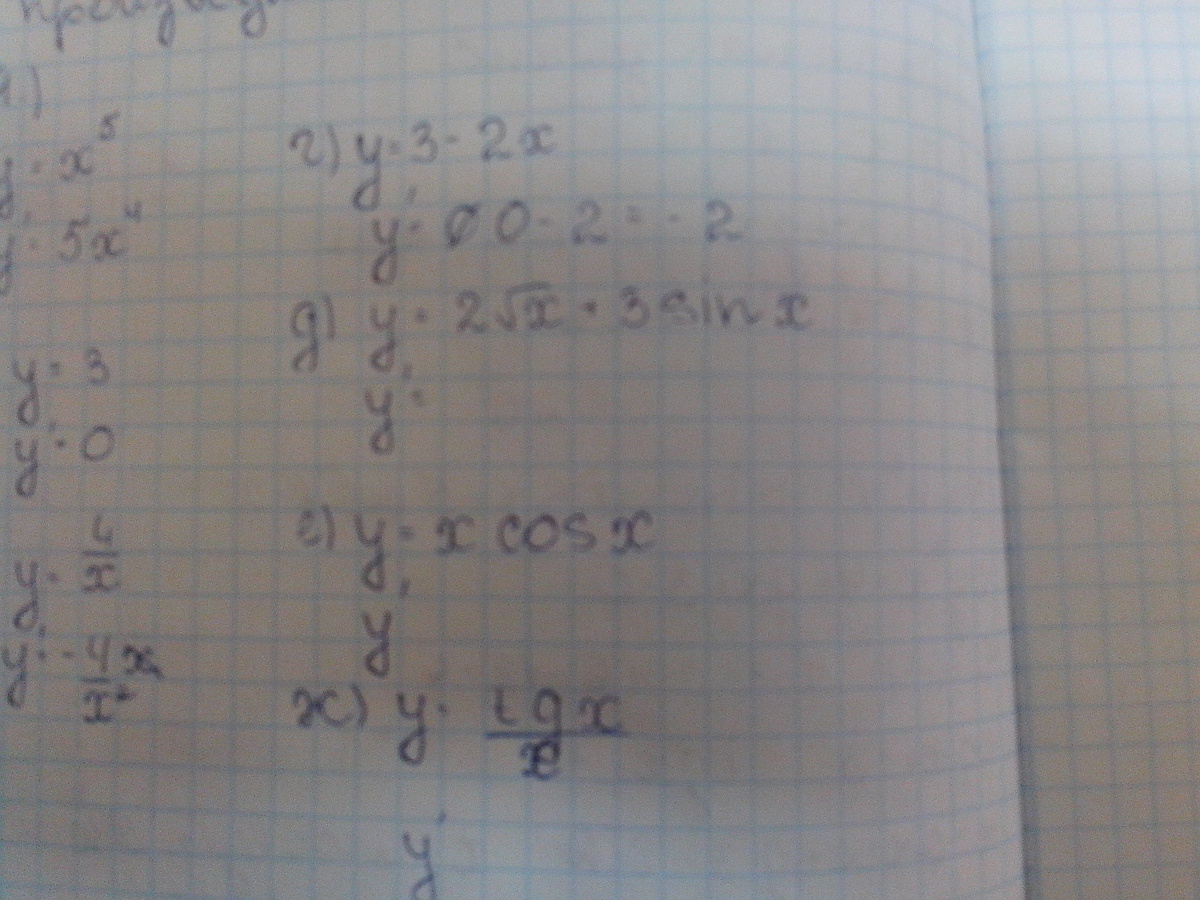 y = x⁵
y' = 5x⁴
y = 3
y' = 0
y = 4/x
y' = -4/x²
г) y = 3 - 2x
y' = 0 - 2 = -2
д) y = 2√x + 3 sin x
y' =
е) y = x cos x
y'
ж) y = tg x / x
y'